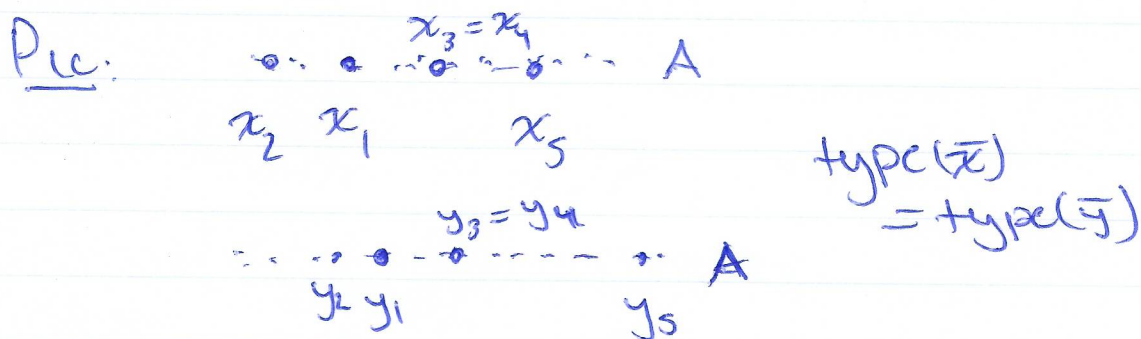 Pic:
x₃ = x₄
A
x₂ x₁ x₅
type(x̄)
= type(ȳ)
y₃ = y₄
A
y₂ y₁ y₅